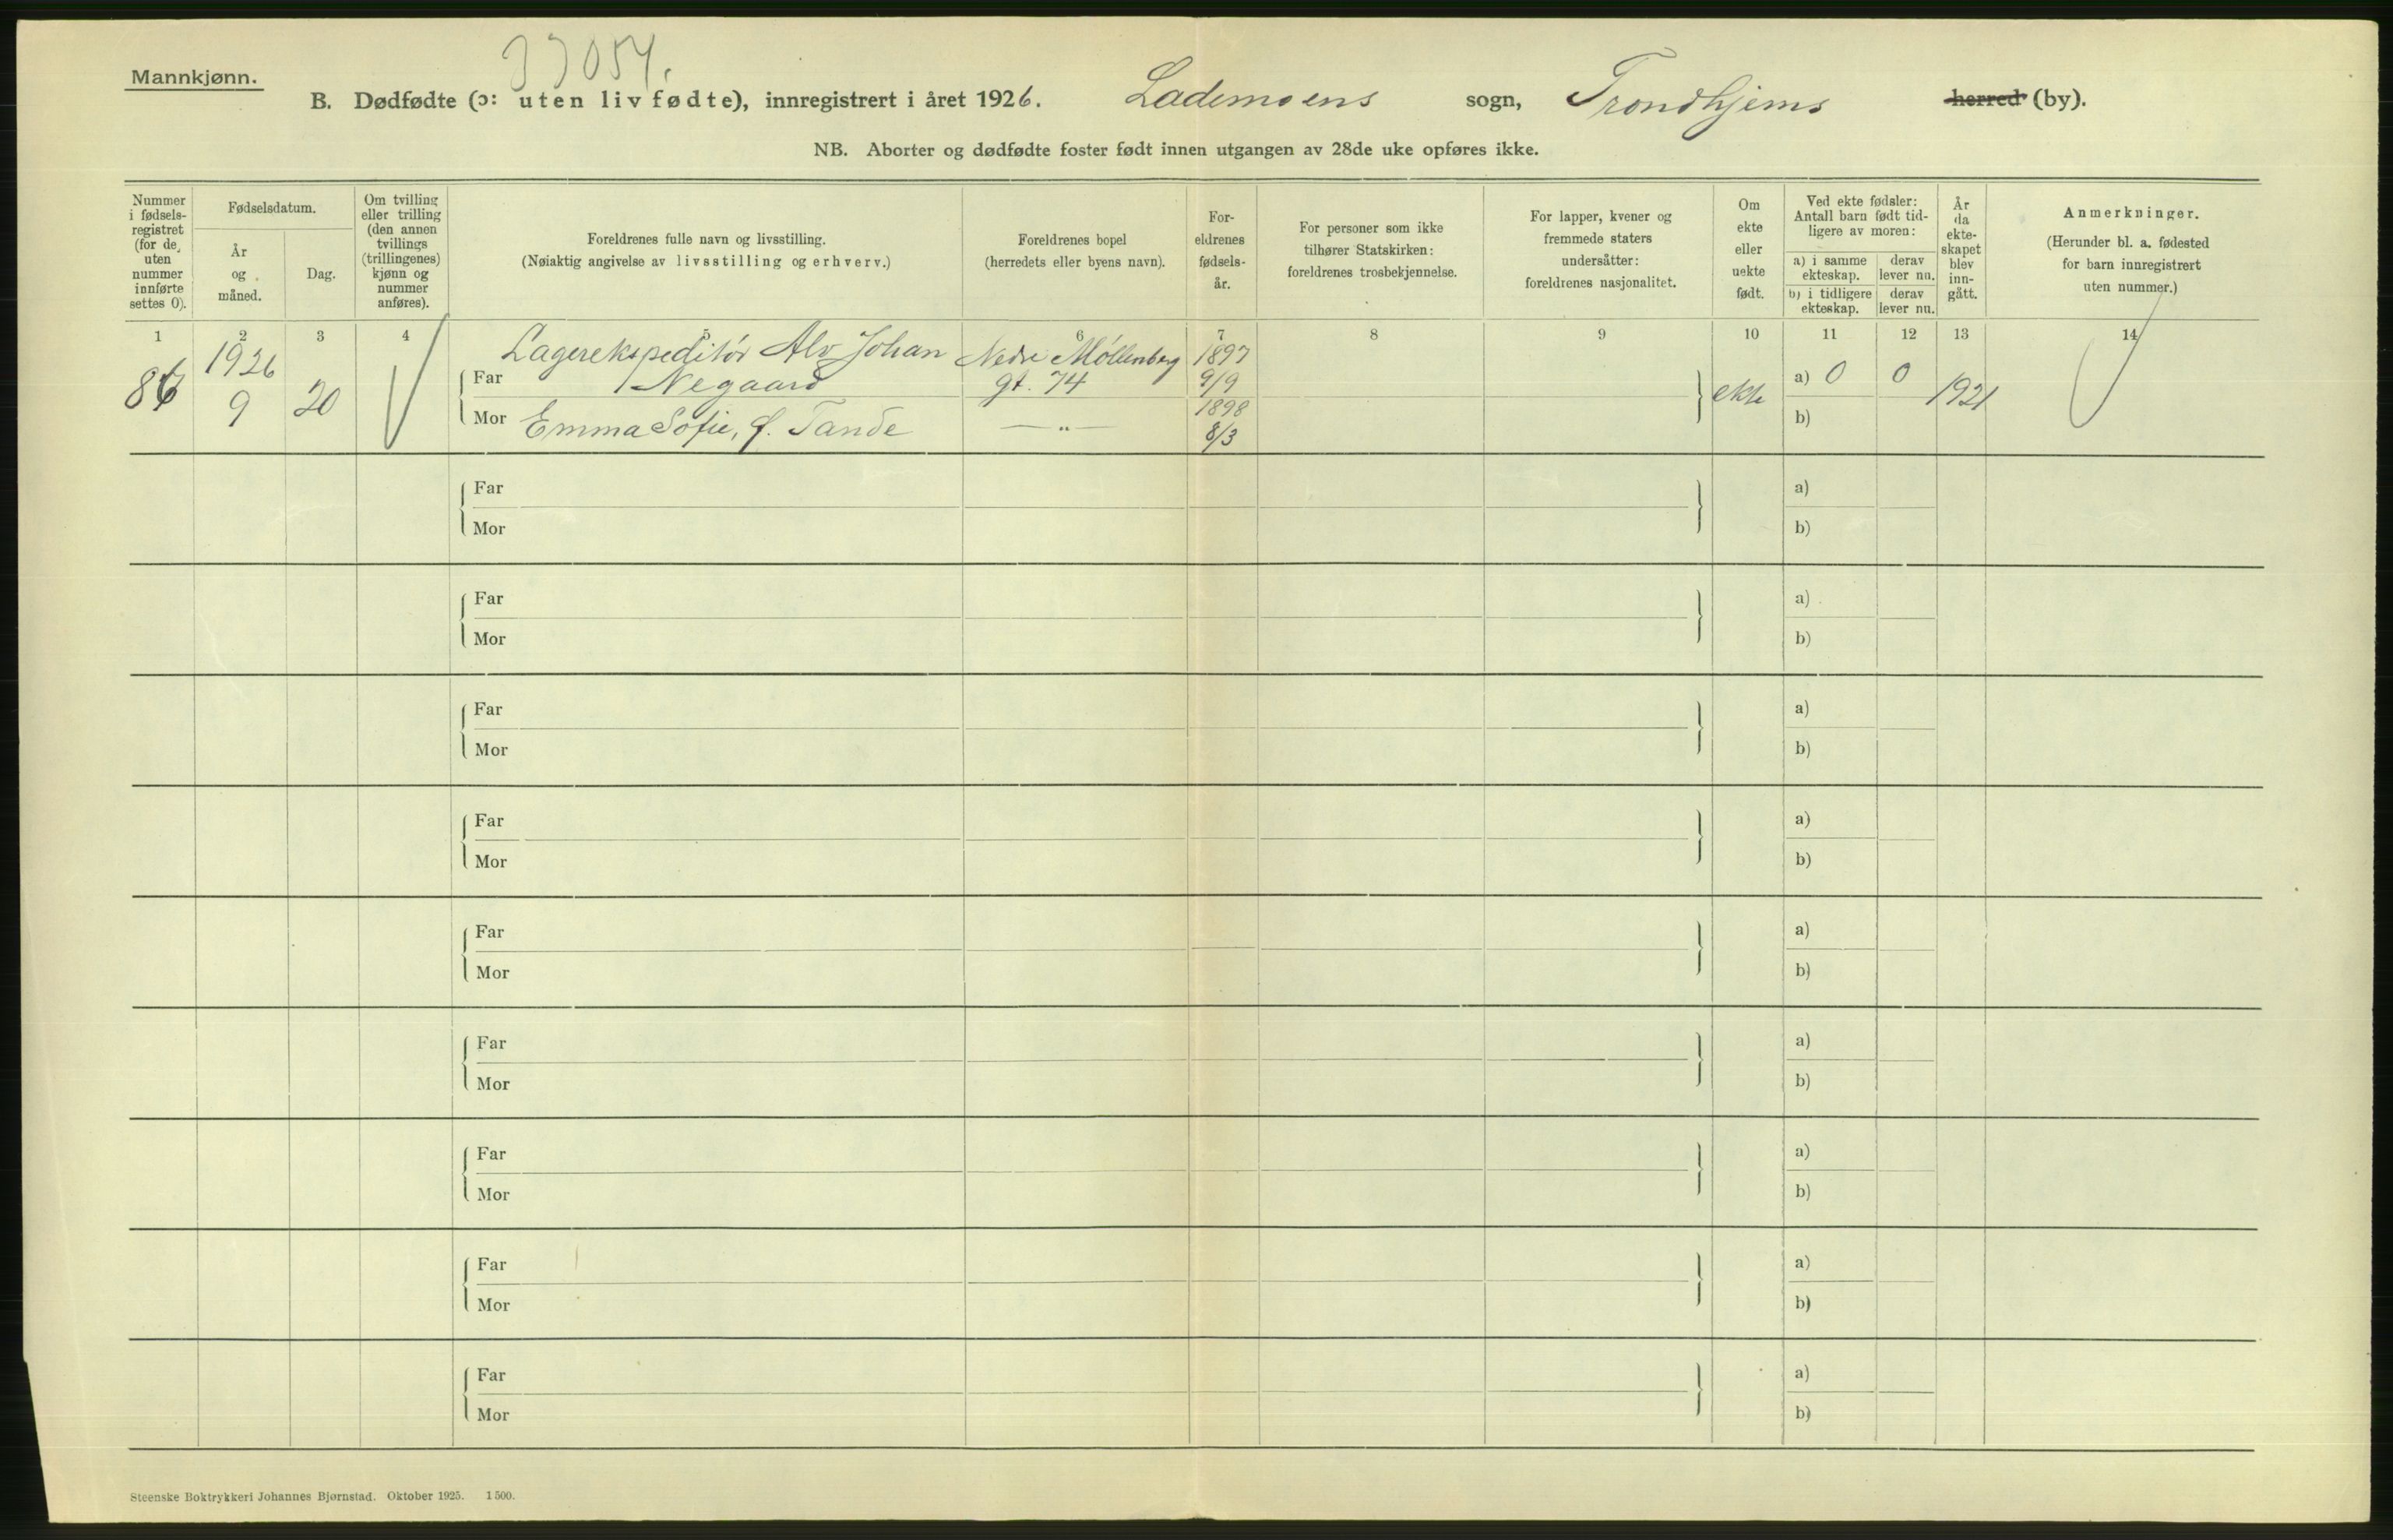 Mannkjønn.
33054.
B. Dødfødte (ɔ: uten liv fødte), innregistrert i året 1926. Lademoens sogn, Trondhjems herred (by).
NB. Aborter og dødfødte foster født innen utgangen av 28de uke opføres ikke.
Nummer i fødsels-registret (for de uten nummer innførte settes 0).
Fødselsdatum.
År og måned.
Dag.
Om tvilling eller trilling (den annen tvillings (trillingenes) kjønn og nummer anføres).
Foreldrenes fulle navn og livsstilling.
(Nøiaktig angivelse av livsstilling og erhverv.)
Foreldrenes bopel
(herredets eller byens navn).
For-eldrenes fødsels-år.
For personer som ikke tilhører Statskirken: foreldrenes trosbekjennelse.
For lapper, kvener og fremmede staters undersåtter: foreldrenes nasjonalitet.
Om ekte eller uekte født.
Ved ekte fødsler: Antall barn født tid-ligere av moren:
a) i samme ekteskap.
derav lever nu.
b) i tidligere ekteskap.
derav lever nu.
År da ekte-skapet blev inn-gått.
Anmerkninger.
(Herunder bl. a. fødested for barn innregistrert uten nummer.)
1 2 3 4 5 6 7 8 9 10 11 12 13 14
1926 Lagerekspeditør Alv Johan Nedre Møllenberg 1897
86 9 20 Far Negaard gt. 74 9/9 ekte a) 0 0 1921
Mor Emma Sofie, f. Tande —"— 1898 8/3 b)
Far a)
Mor b)
Far a)
Mor b)
Far a)
Mor b)
Far a)
Mor b)
Far a)
Mor b)
Far a)
Mor b)
Far a)
Mor b)
Far a)
Mor b)
Far a)
Mor b)
Steenske Boktrykkeri Johannes Bjørnstad. Oktober 1925. 1500.